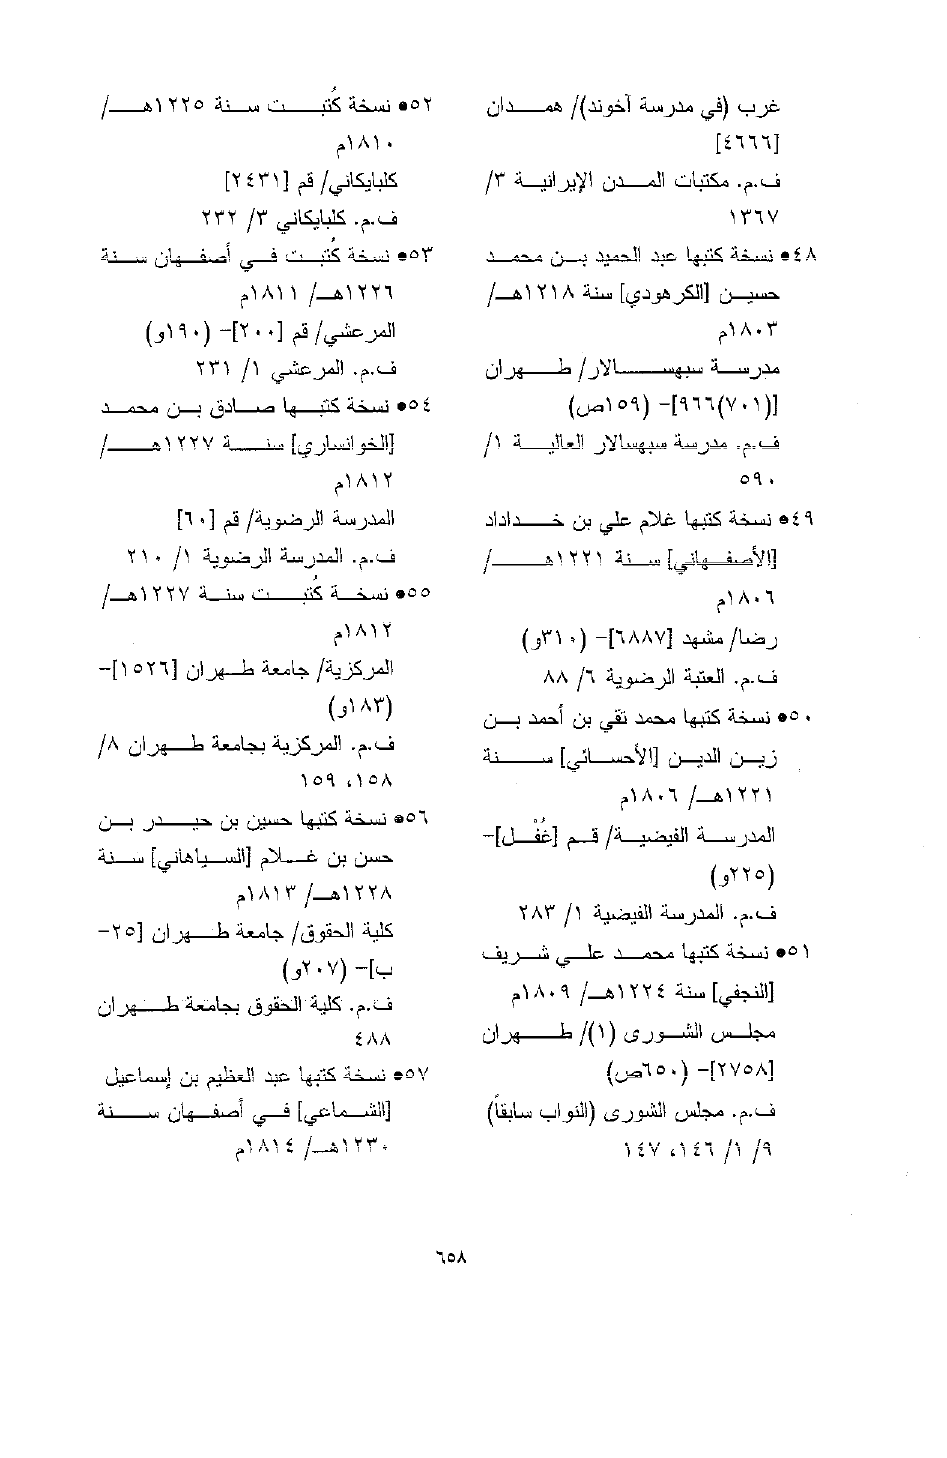 غرب (في مدرسة آخوند)/ همدان
[٤٦٦٦]
ف.م. مكتبات المدن الإيرانية ٣/
١٣٦٧
٤٨● نسخة كتبها عبد الحميد بن محمد
حسين [الكرهودي] سنة ١٢١٨هـ/
١٨٠٣م
مدرسة سبهسالار/ طهران
[(٧٠١)٩٦٦]- (١٥٩ص)
ف.م. مدرسة سبهسالار العالية ١/
٥٩٠
٤٩● نسخة كتبها غلام علي بن خداداد
[الأصفهاني] سنة ١٢٢١هـ/
١٨٠٦م
رضا/ مشهد [٦٨٨٧]- (٣١٠و)
ف.م. العتبة الرضوية ٦/ ٨٨
٥٠● نسخة كتبها محمد تقي بن أحمد بن
زين الدين [الأحسائي] سنة
١٢٢١هـ/ ١٨٠٦م
المدرسة الفيضية/ قم [غُفْل]-
(٢٢٥و)
ف.م. المدرسة الفيضية ١/ ٢٨٣
٥١● نسخة كتبها محمد علي شريف
[النجفي] سنة ١٢٢٤هـ/ ١٨٠٩م
مجلس الشورى (١)/ طهران
[٢٧٥٨]- (٦٥٠ص)
ف.م. مجلس الشورى (النواب سابقاً)
٩/ ١/ ١٤٦، ١٤٧
٥٢● نسخة كُتبت سنة ١٢٢٥هـ/
١٨١٠م
كلبايكاني/ قم [٢٤٣١]
ف.م. كلبايكاني ٣/ ٢٣٢
٥٣● نسخة كُتبت في أصفهان سنة
١٢٢٦هـ/ ١٨١١م
المرعشي/ قم [٢٠٠]- (١٩٠و)
ف.م. المرعشي ١/ ٢٣١
٥٤● نسخة كتبها صادق بن محمد
[الخوانساري] سنة ١٢٢٧هـ/
١٨١٢م
المدرسة الرضوية/ قم [٦٠]
ف.م. المدرسة الرضوية ١/ ٢١٠
٥٥● نسخة كُتبت سنة ١٢٢٧هـ/
١٨١٢م
المركزية/ جامعة طهران [١٥٢٦]-
(١٨٣و)
ف.م. المركزية بجامعة طهران ٨/
١٥٨، ١٥٩
٥٦● نسخة كتبها حسين بن حيدر بن
حسن بن غلام [السياهاني] سنة
١٢٢٨هـ/ ١٨١٣م
كلية الحقوق/ جامعة طهران [٢٥-
ب]- (٢٠٧و)
ف.م. كلية الحقوق بجامعة طهران
٤٨٨
٥٧● نسخة كتبها عبد العظيم بن إسماعيل
[الشماعي] في أصفهان سنة
١٢٣٠هـ/ ١٨١٤م
٦٥٨